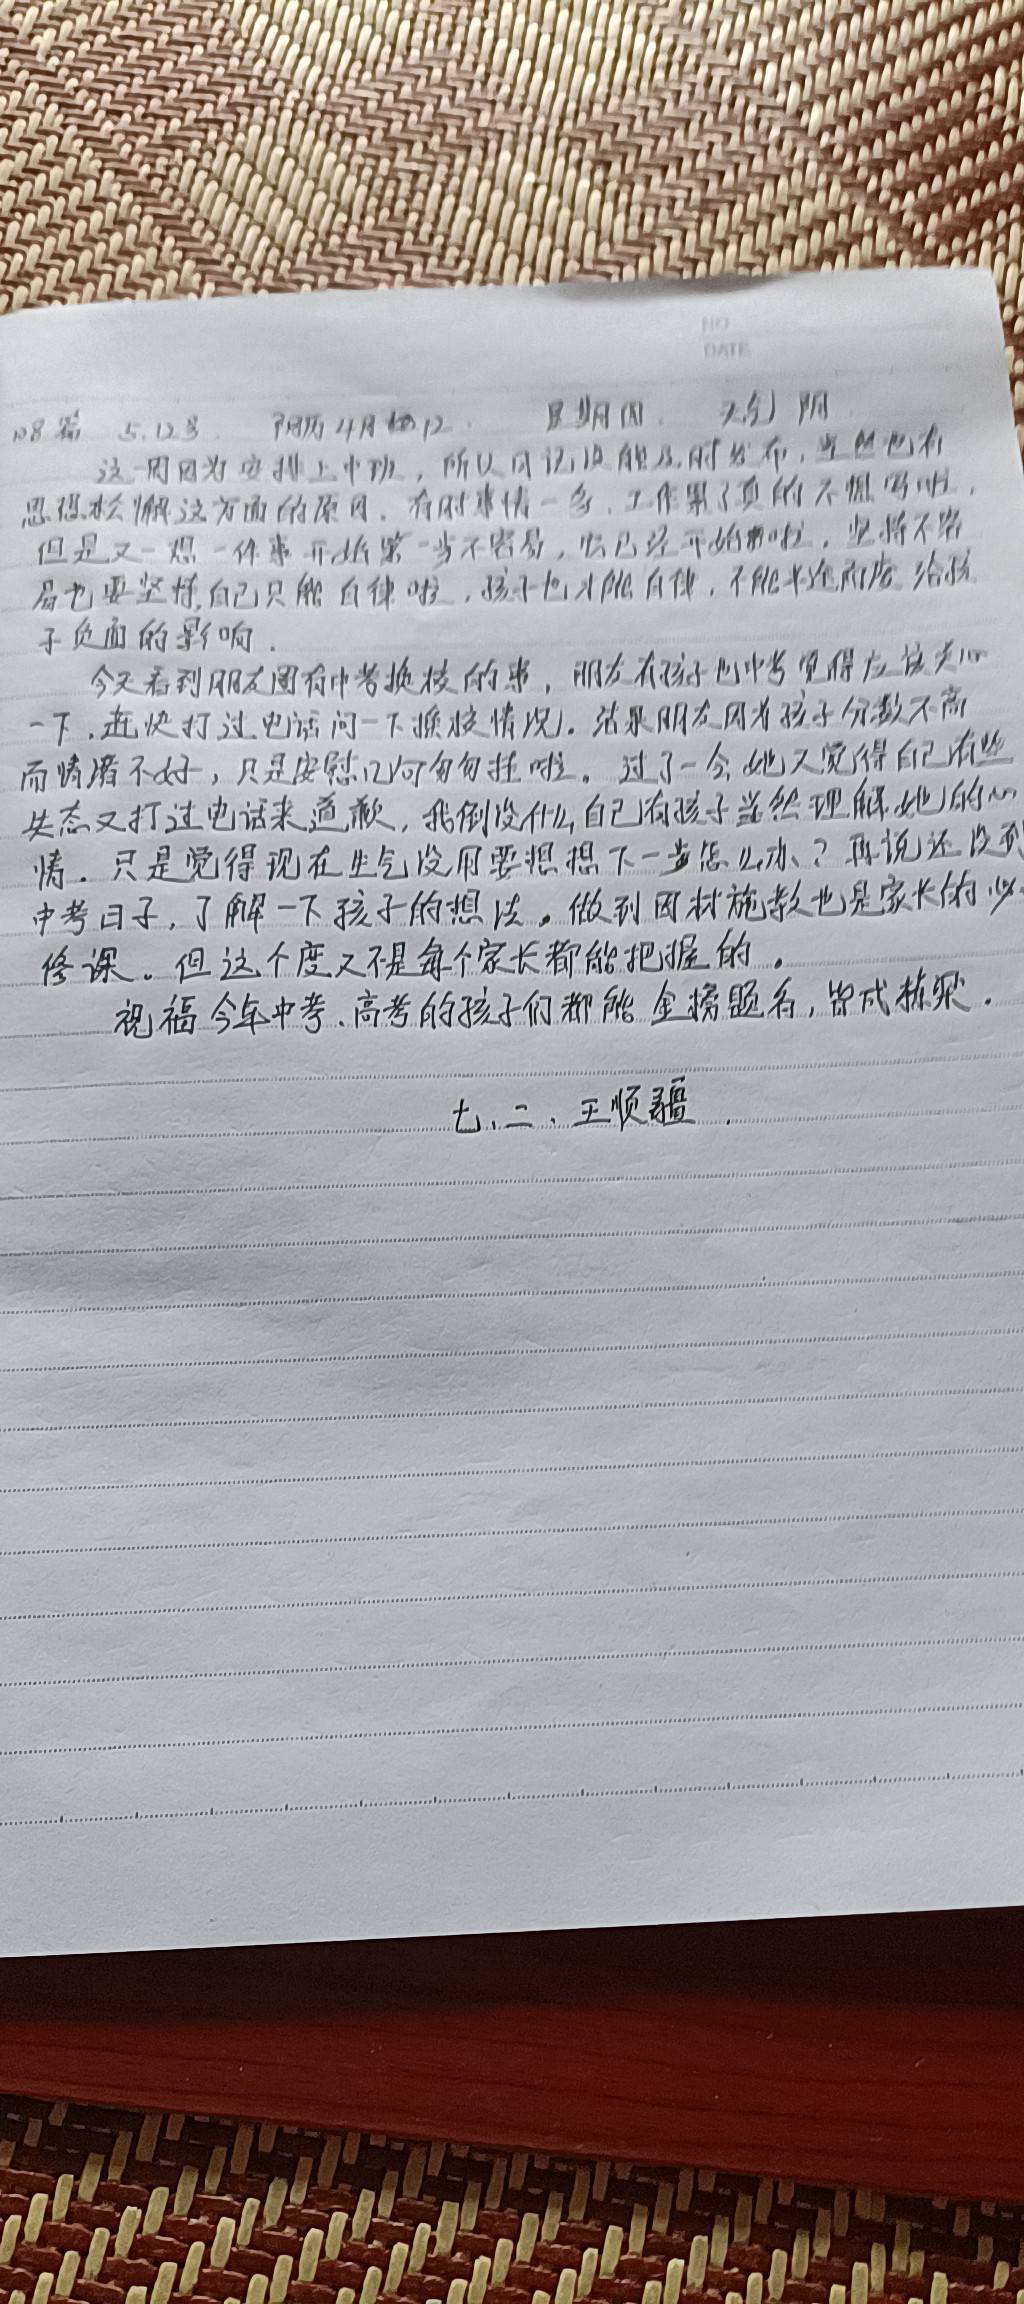 NO
DATE
108篇 5.12号 阴历4月12 星期四. 天气阴
这一周因为安排上中班，所以日记没能及时发布，当然也有
思想松懈这方面的原因．有时事情一多，工作累了真的不想写啦，
但是又一想一件事开始第一步不容易，已经开始啦，坚持不容
易也要坚持，自己只能自律啦，孩子也才能自律，不能半途而废给孩
子负面的影响．
今天看到朋友圈有中考换校的事，朋友有孩子也中考觉得应该关心
一下，赶快打过电话问一下换校情况．结果朋友因为孩子分数不高
而情绪不好，只是安慰几句匆匆挂啦。过了一会，她又觉得自己有些
失态又打过电话来道歉，我倒没什么，自己有孩子当然理解她的心
情．只是觉得现在生气没用要想想下一步怎么办、？再说还没到
中考日子，了解一下孩子的想法。做到因材施教也是家长的必
修课。但这个度又不是每个家长都能把握的．
祝福今年中考、高考的孩子们都能金榜题名，皆成栋梁．
七、二、王顺疆．